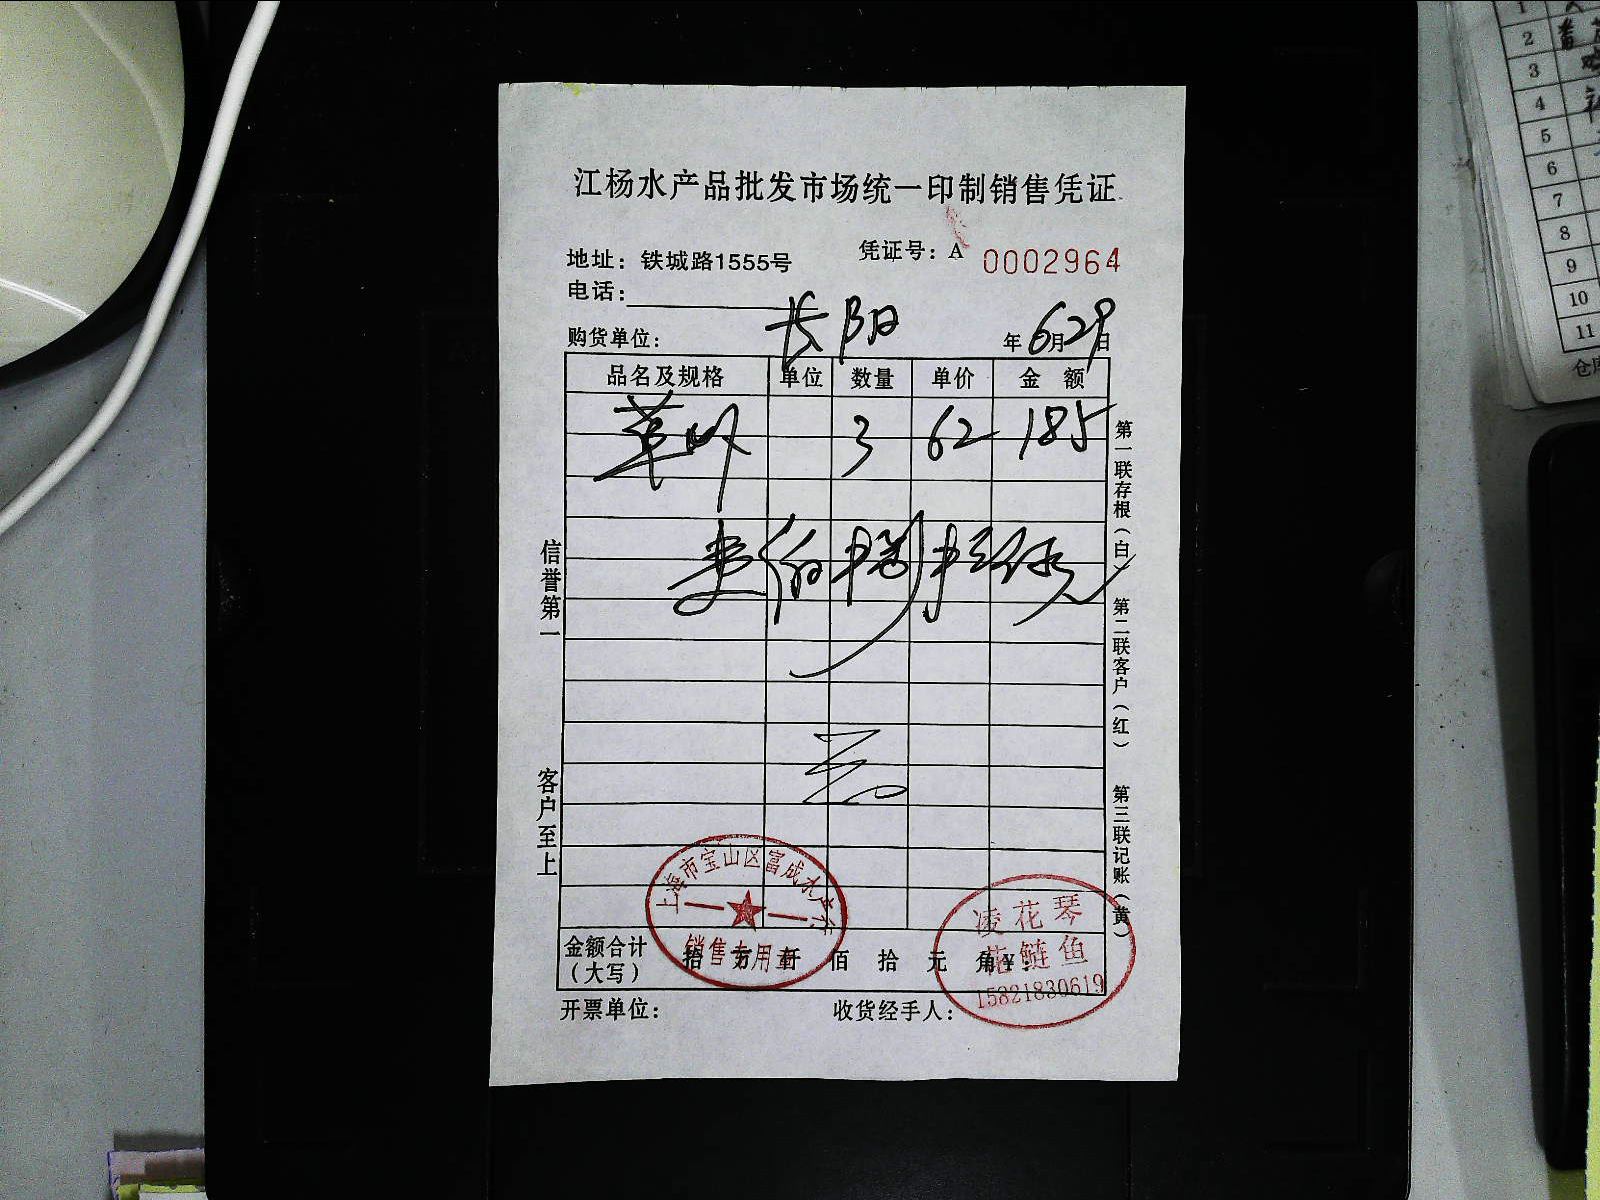 江杨水产品批发市场统一印制销售凭证
地址：铁城路1555号
凭证号：A 0002964
电话：
购货单位：长阳
年6月29日
品名及规格 单位 数量 单价 金 额
3 62 185
信誉第一
客户至上
第一联存根（白） 第二联客户（红） 第三联记账（黄）
上海市宝山区富成水产行
销售专用章
凌花琴
花鲢鱼
15821830619
金额合计（大写） 拾 万 仟 佰 拾 元 角 ¥：
开票单位：
收货经手人：
1
2
3
4
5
6
7
8
9
10
11